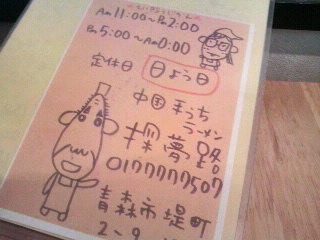 Am 11:00〜Pm 2:00
Pm 5:00〜Am 0:00
定休日 日よう日
中国まっち
ラーメン
探夢路
0177777507
青森市堤町
2-9